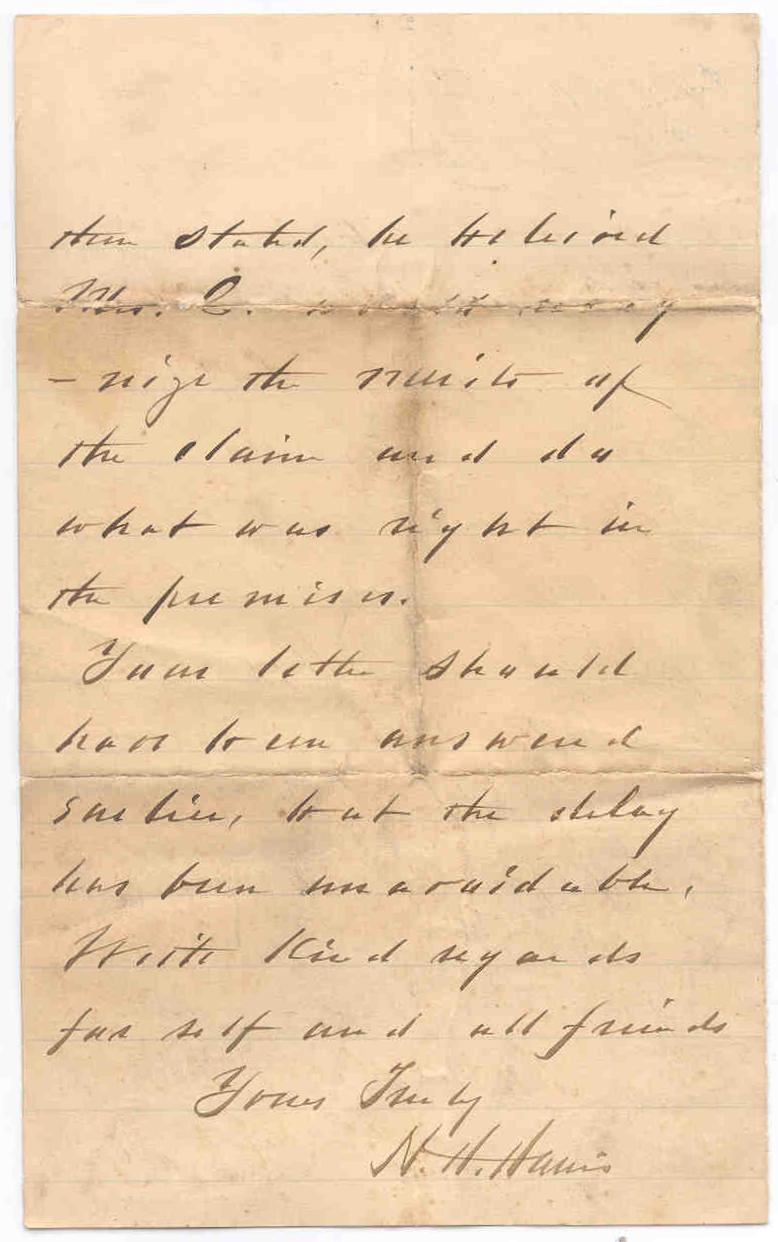 then stated, he believed
Mrs. C. would recog
- nize the merits of
the claim and do
what was right in
the premises.
Your letter should
have been answered
earlier, but the delay
has been unavoidable.
With Kind regards
for self and all friends
Yours Truly
N. H. Harris